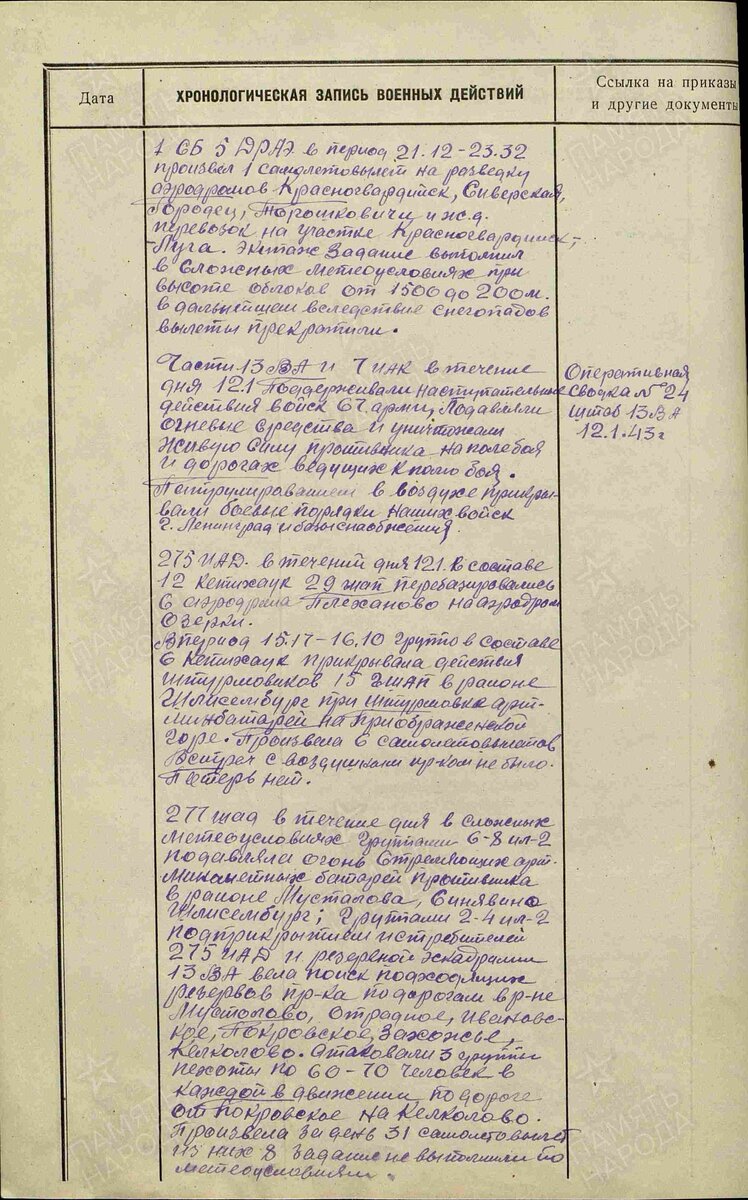 Дата
ХРОНОЛОГИЧЕСКАЯ ЗАПИСЬ ВОЕННЫХ ДЕЙСТВИЙ
Ссылка на приказы
и другие документы
1 СБ 5 ДРАЭ в период 21.12-23.32
произвел 1 самолетовылет на разведку
аэродромов Красногвардийск, Сиверская,
Городец, Торошковичи и ж.д.
перевозок на участке Красногвардийск,-
-Луга. Экипаж задание выполнил
в сложных метеоусловиях при
высоте облаков от 1500 до 200м.
в дальнейшем вследствие снегопадов
вылеты прекратили.
Части 13 ВА и 7 ИАК в течение
дня 12.1 Поддерживали наступательные
действия войск 67 армии, Подавляли
огневые средства и уничтожали
живую силу противника на поле боя
и дорогах ведущих к полю боя.
Патрулированием в воздухе прикры-
вали боевые порядки наших войск
г. Ленинград и базы снабжения
Оперативная
сводка № 24
штаб 13 ВА
12.1.43 г
275 ИАД. в течении дня 12.1. в составе
12 Китихаук 29 иап перебазировались
с аэродрома Плеханово на аэродром
Озерки.
В период 15.17-16.10 группа в составе
6 Китихаук прикрывала действия
штурмовиков 15 гшап в районе
Шлиссельбург при штурмовке арт-
минбатарей на Приображенской
Горе. Произвела 6 самолетовылетов
Встреч с воздушным пр-ком не было.
Потерь нет.
277 шад в течение дня в сложных
метеоусловиях группами 6-8 ил-2
подавляла огонь стреляющих арт-
минометных батарей противника
в районе Мусталова, Синявино
Шлисембург; Группами 2-4 ил-2
под прикрытием истребителей
275 ИАД и резервной эскадрилии
13 ВА вела поиск подходящих
резервов пр-ка по дорогам в р-не
Мустолово, Отрадное, Ивановс-
кое, Покровское, Захожье,
Келколово. Атаковали 3 группы
пехоты по 60-70 человек в
каждой в движении по дороге
от Покровское на Келколово.
Произвела за день 31 самолетовылет
из них 8 задание не выполнили по
метеоусловиям.